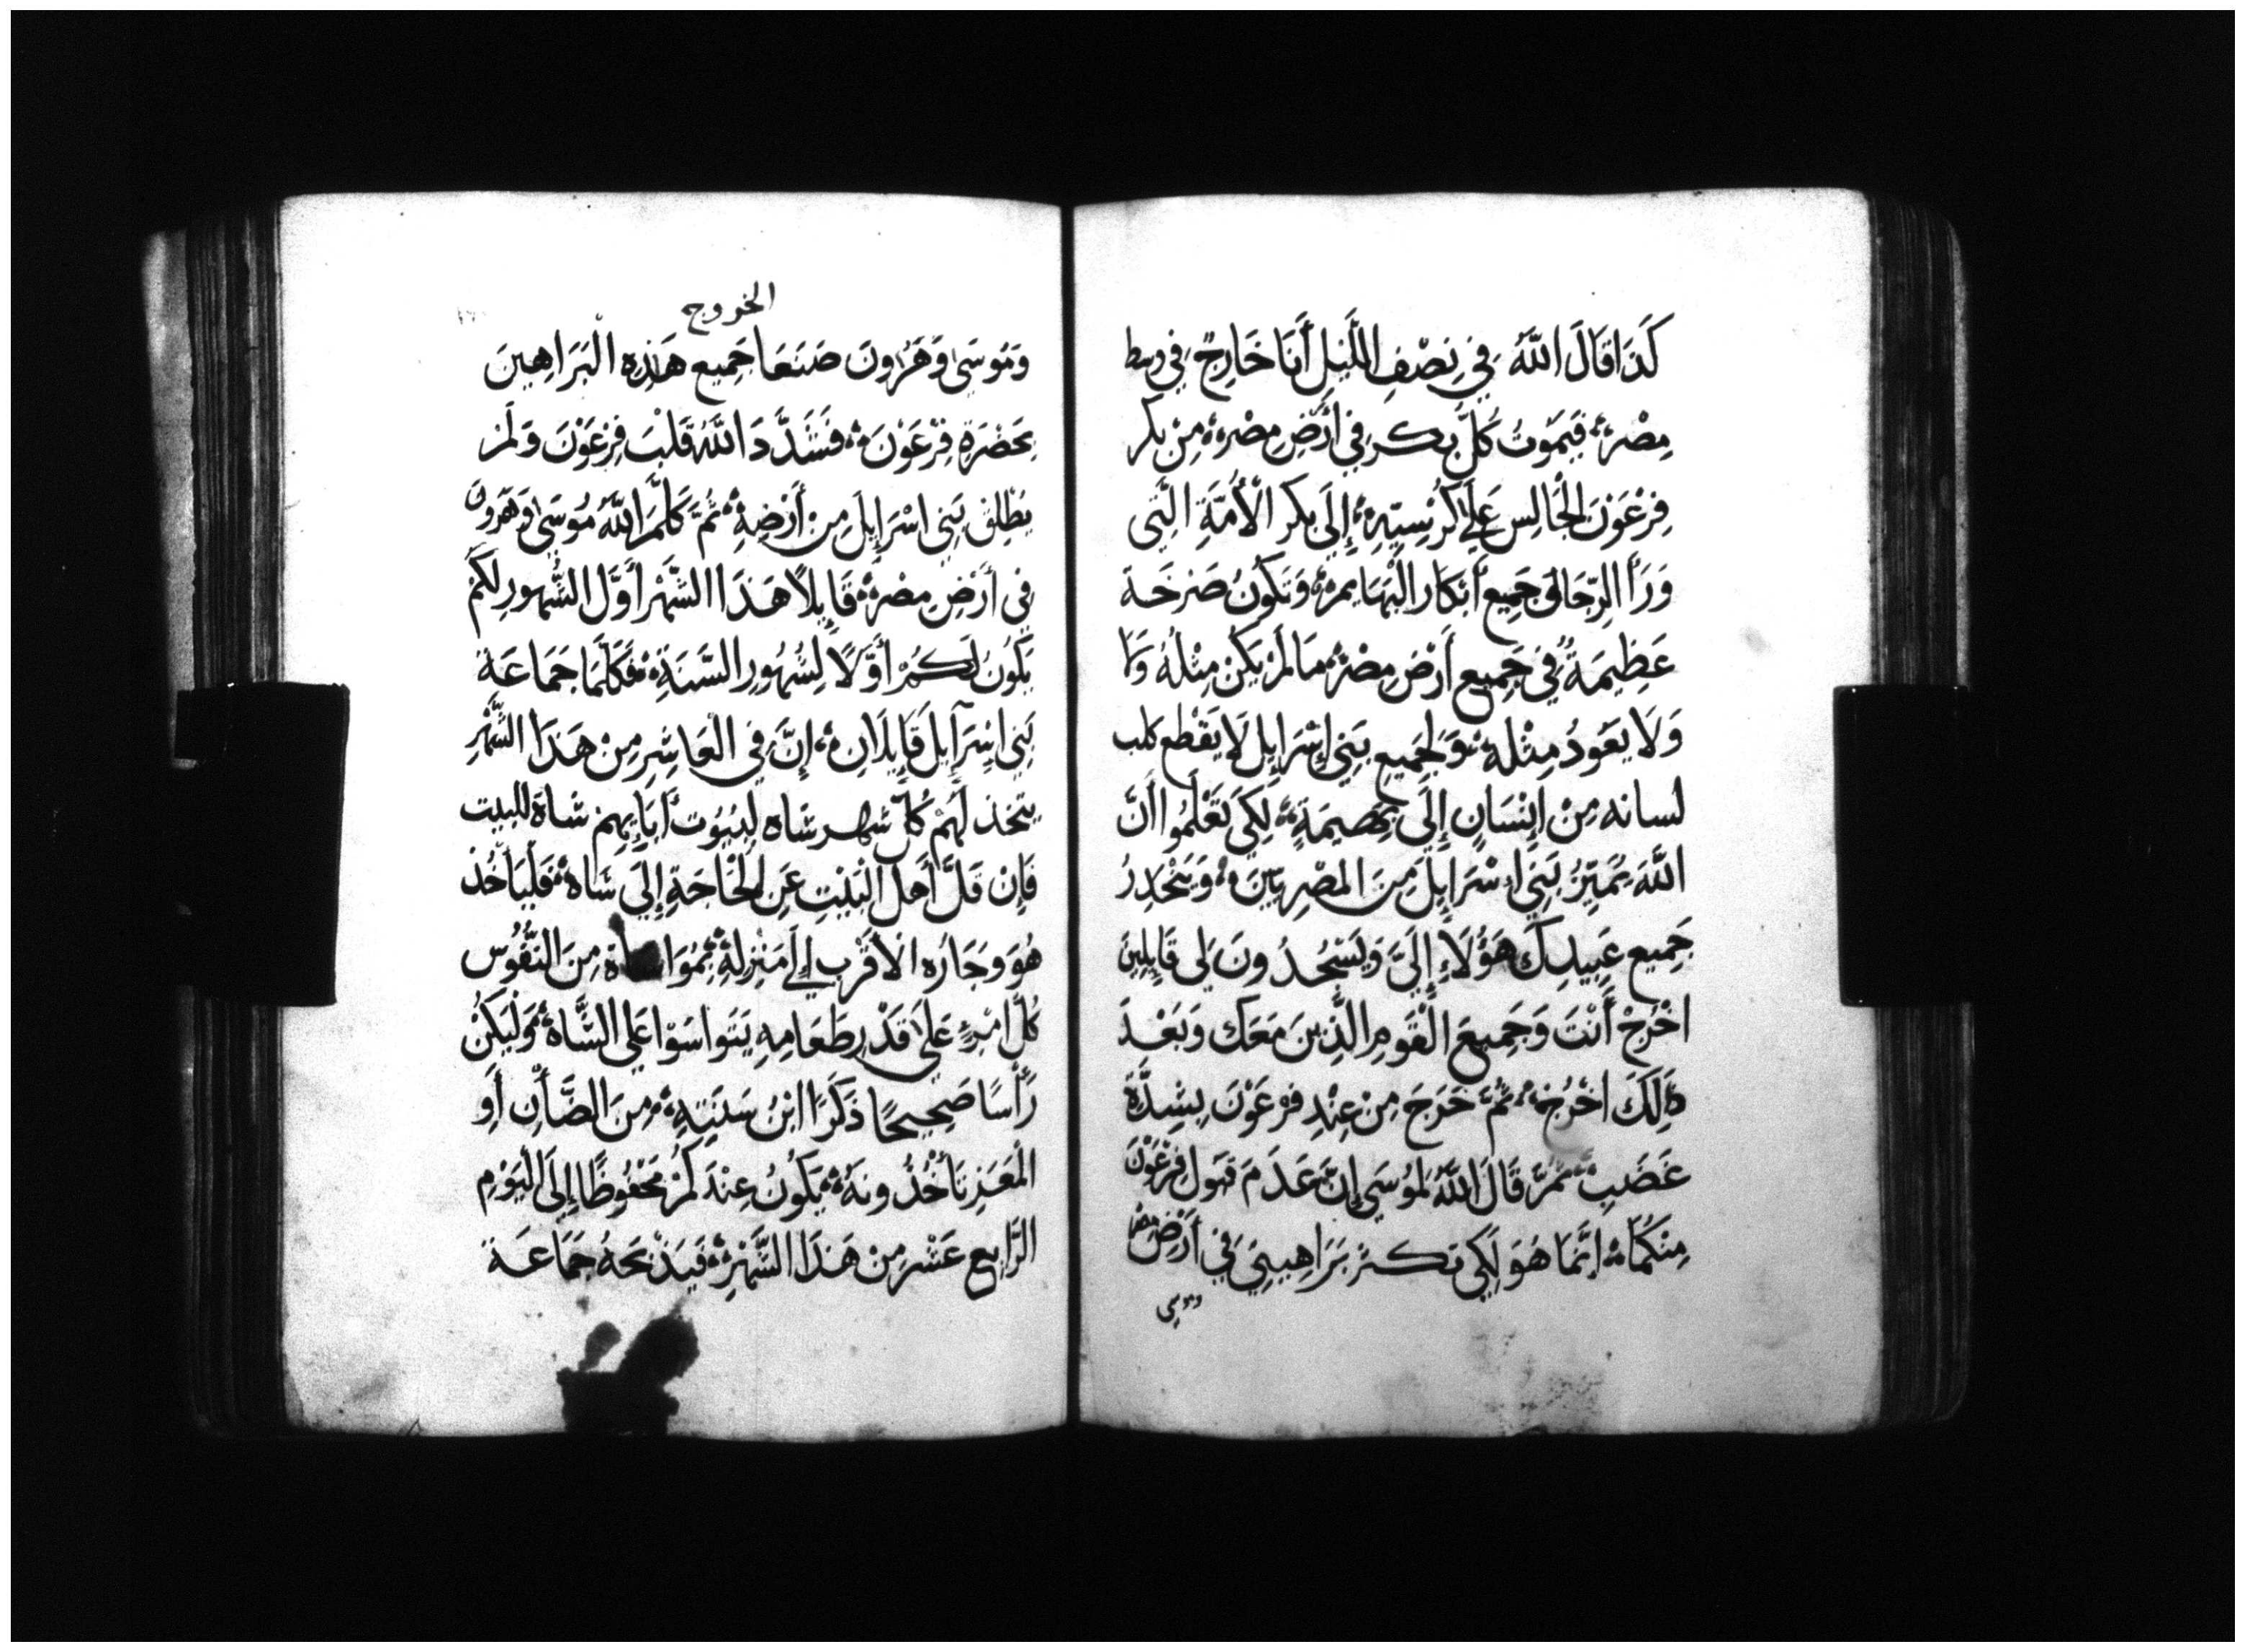 كَذَا قَالَ اللَّهُ فِي نِصْفِ اللَّيْلِ أَنَا خَارِجٌ فِي وسط
مِصْرَ فَيَمُوتُ كُلُّ بِكرٍ فِي أَرْضِ مِصْرَ مِنْ بِكر
فِرْعَوْنَ الْجَالِسِ عَلَى كُرْسِيِّهِ إِلَى بِكر الْأُمَّةِ الَّتِي
وَرَأ الرِّحَا وَجَمِيع أَبْكَارِ الْبَهَايم وَتَكُونُ صَرْخَة
عَظِيمَةٌ فِي جَمِيعِ أَرْضِ مِصْرَ مَا لَمْ يَكُنْ مِثْلُهُ وَلَا
وَلَا يَعُودُ مِثْلُهُ وَلِجَمِيعِ بَنِي إِسْرَايِل لَا يَقْطَع كلب
لسانه مِنْ إِنْسَانٍ إِلَى بَهِيمَةٍ لِكَيْ تَعْلَمُوا أَنَّ
اللَّهَ يُمَيِّزُ بَنِي اسْرَايِلَ مِنَ الْمِصْرِيِّينَ وَيَنْحَدِرُ
جَمِيع عَبِيدِكَ هَؤُلَاءِ إِلَيَّ وَيَسْجُدُونَ لِي قَايِلِينَ
اخْرُجْ أَنْتَ وَجَمِيعَ الْقَوْمِ الَّذِينَ مَعَكَ وَبَعْدَ
ذَلِكَ اخْرُجْ ثُمَّ خَرَجَ مِنْ عِنْدِ فِرْعَوْنَ بِشِدَّة
غَضَبٍ ثُمَّ قَالَ اللَّهُ لِمُوسَى إِنَّ عَدَمَ قَبُولِ فِرْعَوْنَ
مِنْكُمَا إِنَّمَا هُوَ لِكَيْ تَكثر بَرَاهِينِي فِي أَرْضِ مِصْر
وموسى
الخروج
وَمُوسَى وَهَرُونَ صَنَعَا جَمِيع هَذِهِ الْبَرَاهِينَ
بِحَضْرَةِ فِرْعَوْنَ فَشَدَّدَ اللَّهُ قَلْبَ فِرْعَوْنَ وَلَمْ
يُطْلِقْ بَنِي اسْرَايِلَ مِنْ أَرْضِهِ ثُمَّ كَلَّمَ اللَّهُ مُوسَى وَهَرُونَ
فِي أَرْضِ مِصْرَ قَايِلًا هَذَا الشَّهْر أَوَّل الشُّهُورِ لَكُمْ
يَكُونُ لَكُمْ أَوَّلًا لِشُهُورِ السَّنَةِ فَكَلِّمَا جَمَاعَة
بَنِي اسْرَايِلَ قَايِلَانِ إِنَّ فِي الْعَاشِرِ مِنْ هَذَا الشَّهْرِ
يتخذ لَهُمْ كُلّ شهر شاه لِبُيُوت أَبَايِهِمْ شاة للبيت
فَإِنْ قَلَّ أَهْل الْبَيْتِ عَنِ الْحَاجَةِ إِلَى شاه فَلْيَأْخُذْ
هُوَ وَجَارُه الأَقْرَب إِلَى مَنْزِلِهِ مِنَ النُّفُوسِ
كُلّ امْرِءٍ عَلَى قَدْرِ طَعَامِهِ يَتَوَاسَوْا عَلَى الشَّاة وَلْيَكُنْ
رَأْسًا صَحِيحًا ذَكَرًا ابْنُ سَنَتِهِ مِنَ الضَّأْنِ أَوِ
الْمَعَزِ تَأْخُذُونَهُ يَكُونُ عِنْدَكُمْ مَحْفُوظًا إِلَى الْيَوْمِ
الرَّابِع عَشَر مِنْ هَذَا الشَّهْرِ فَيَذْبَحَهُ جَمَاعَة